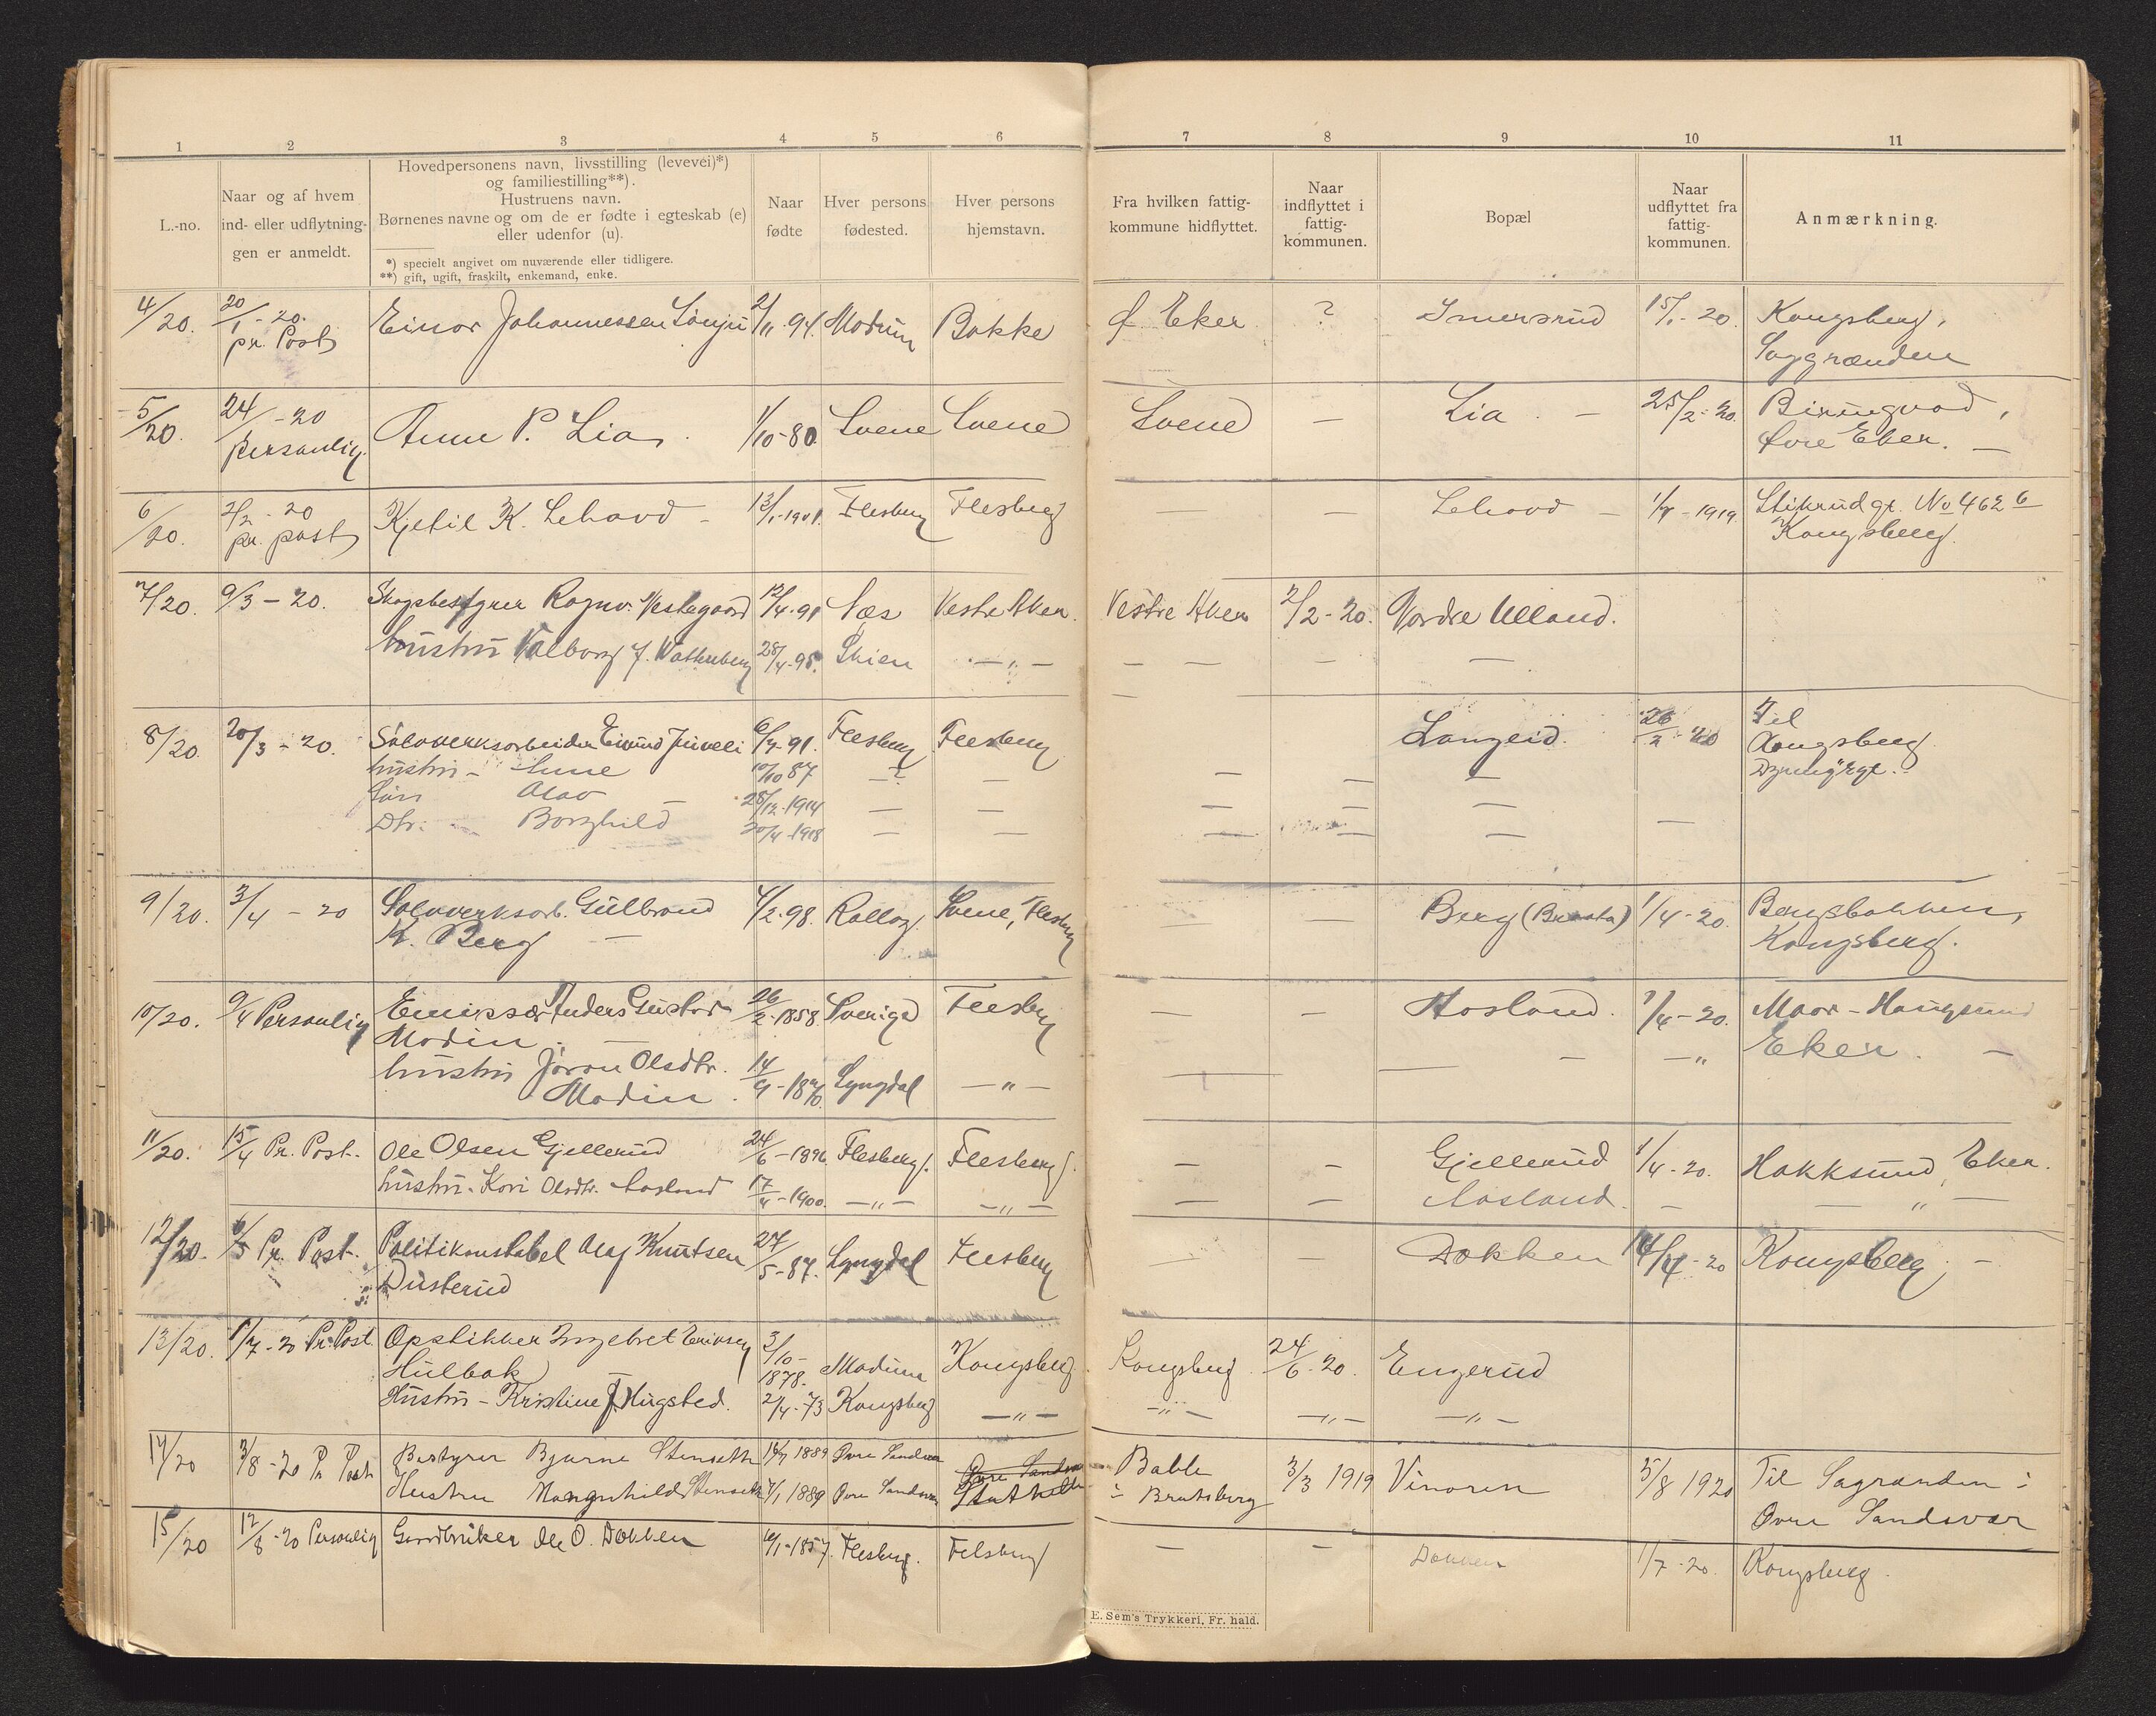 1 2 3 4 5 6 7 8 9 10 11
L.-no.
Naar og af hvem
ind- eller udflytnin-
gen er anmeldt.
Hovedpersonens navn, livsstilling (levevei)*)
og familiestilling**).
Hustruens navn.
Børnenes navne og om de er fødte i egteskab (e)
eller udenfor (u).
*) specielt angivet om nuværende eller tidligere.
**) gift, ugift, fraskilt, enkemand, enke.
Naar
fødte
Hver persons
fødested.
Hver persons
hjemstavn.
Fra hvilken fattig-
kommune hidflyttet.
Naar
indflyttet i
fattig-
kommunen.
Bopæl
Naar
udflyttet fra
fattig-
kommunen.
Anmærkning.
4/20. 20/1 - 20. Einar Johannessen 2/11 94. Modum Bakke Ø. Eker ? 15/1 - 20. Kongsberg,
pr. Post
5/20. 24/ - 20 Anne P. Lia. 1/10 - 80. Svene Svene Svene — Lia. — 25/2 - 20.
personlig. Øvre Eker. —
6/20. 2/2 - 20 Kjetil K. Lehovd - 13/1 - 1901. Flesberg Flesberg — — Lehovd — - 1919. No 462 b
pr. post Kongsberg.
7/20. 9/3 - 20. Skogsbestyrer Ragnv. Vestegaard 12/4 - 91 Næs Vestre Aker. Vestre Aker 2/2 - 20. Nordre Ulland.
hustru Valborg f. 28/4 - 95. Skien — „ — — — — —
8/20. 20/3 - 20. Sølvverksarbeider Eivind 6/7 - 91. Flesberg Flesberg Langeid. 26/2 - 20 Til
hustru - 10/10 87 — ? — — — — Kongsberg
Søn Olav 28/12 - 1914 — — — — —
Dtr. Borghild 20/4 - 1918 — — — — —
9/20. 3/4 - 20 Sølvverksarb. Gulbrand 4/2 - 98. Rollag. Svene, Flesberg — — Berg 1/4 - 20. Bergsbakken,
K. Berg — Kongsberg.
10/20. 9/4 Personlig Anders Gustav 26/2 - 1858. Sverige Flesberg — — Aasland. 7/4 - 20. Eker. —
Modin. —
hustru Jøran Olsdtr. 14/9 - 1870. Lyngdal — „ —
Modin.
11/20. 15/4 Pr. Post. Ole Olsen Gjellerud 24/6 - 1896. Flesberg. Flesberg. — — Gjellerud 1/4 - 20. Hokksund, Eker.
hustru - Kari Olsdtr. Aasland 17/4 - 1900. — „ — — „ — — — Aasland. — — „ —
12/20. 6/5 Pr. Post. Politikonstabel Olaf Knutsen 27/5 - 87. Lyngdal Flesberg — Dokken 14/4 - 20 Kongsberg, —
Dusterud
13/20. 5/7 - 20 Pr. Post. Opstikker Ingebret Eriksen 3/10 - 1878. Modum Kongsberg. Kongsberg 24/6 - 20. Engerud
Hulbak —
Hustru - Kristine f. Hugsted. 2/4 - 73 Kongsberg — „ — — „ — — „ — — „ —
14/20 3/8 - 20 Pr. Post Bestyrer Bjarne Stenseth 1889 Øvre Sandsvær Øvre Sandsvær Bable 3/3 1919 Vinoren 5/8 1920 Til Sagrenden i
Hustru Mangnhild Stenseth 7/1 1889 Øvre Sandsvær Stathelle i Bratsberg Øvre Sandsvær
15/20 12/8 - 20 Personlig Gaardbruker Ole O. Dokken 6/1 - 1857. Flesberg. Felsberg — — Dokken 1/7 - 20. Kongsberg.
E. Sem's Trykkeri, Fr. hald.